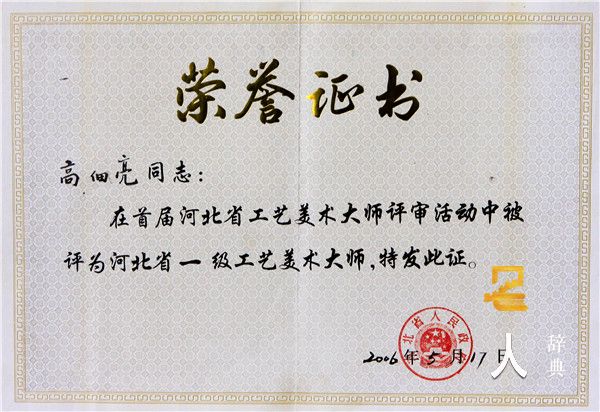 荣誉证书
高佃亮同志：
在首届河北省工艺美术大师评审活动中被
评为河北省一级工艺美术大师，特发此证。
河北省人民政府
2006年5月17日
人
辞典